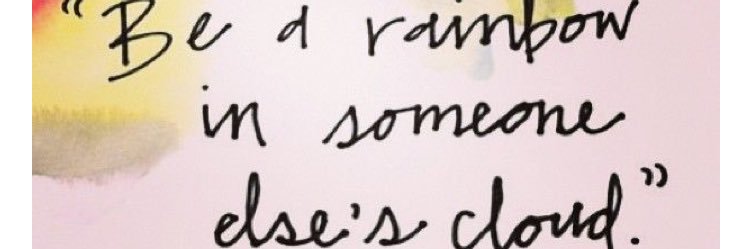 “Be a rainbow
in someone
else's cloud.”